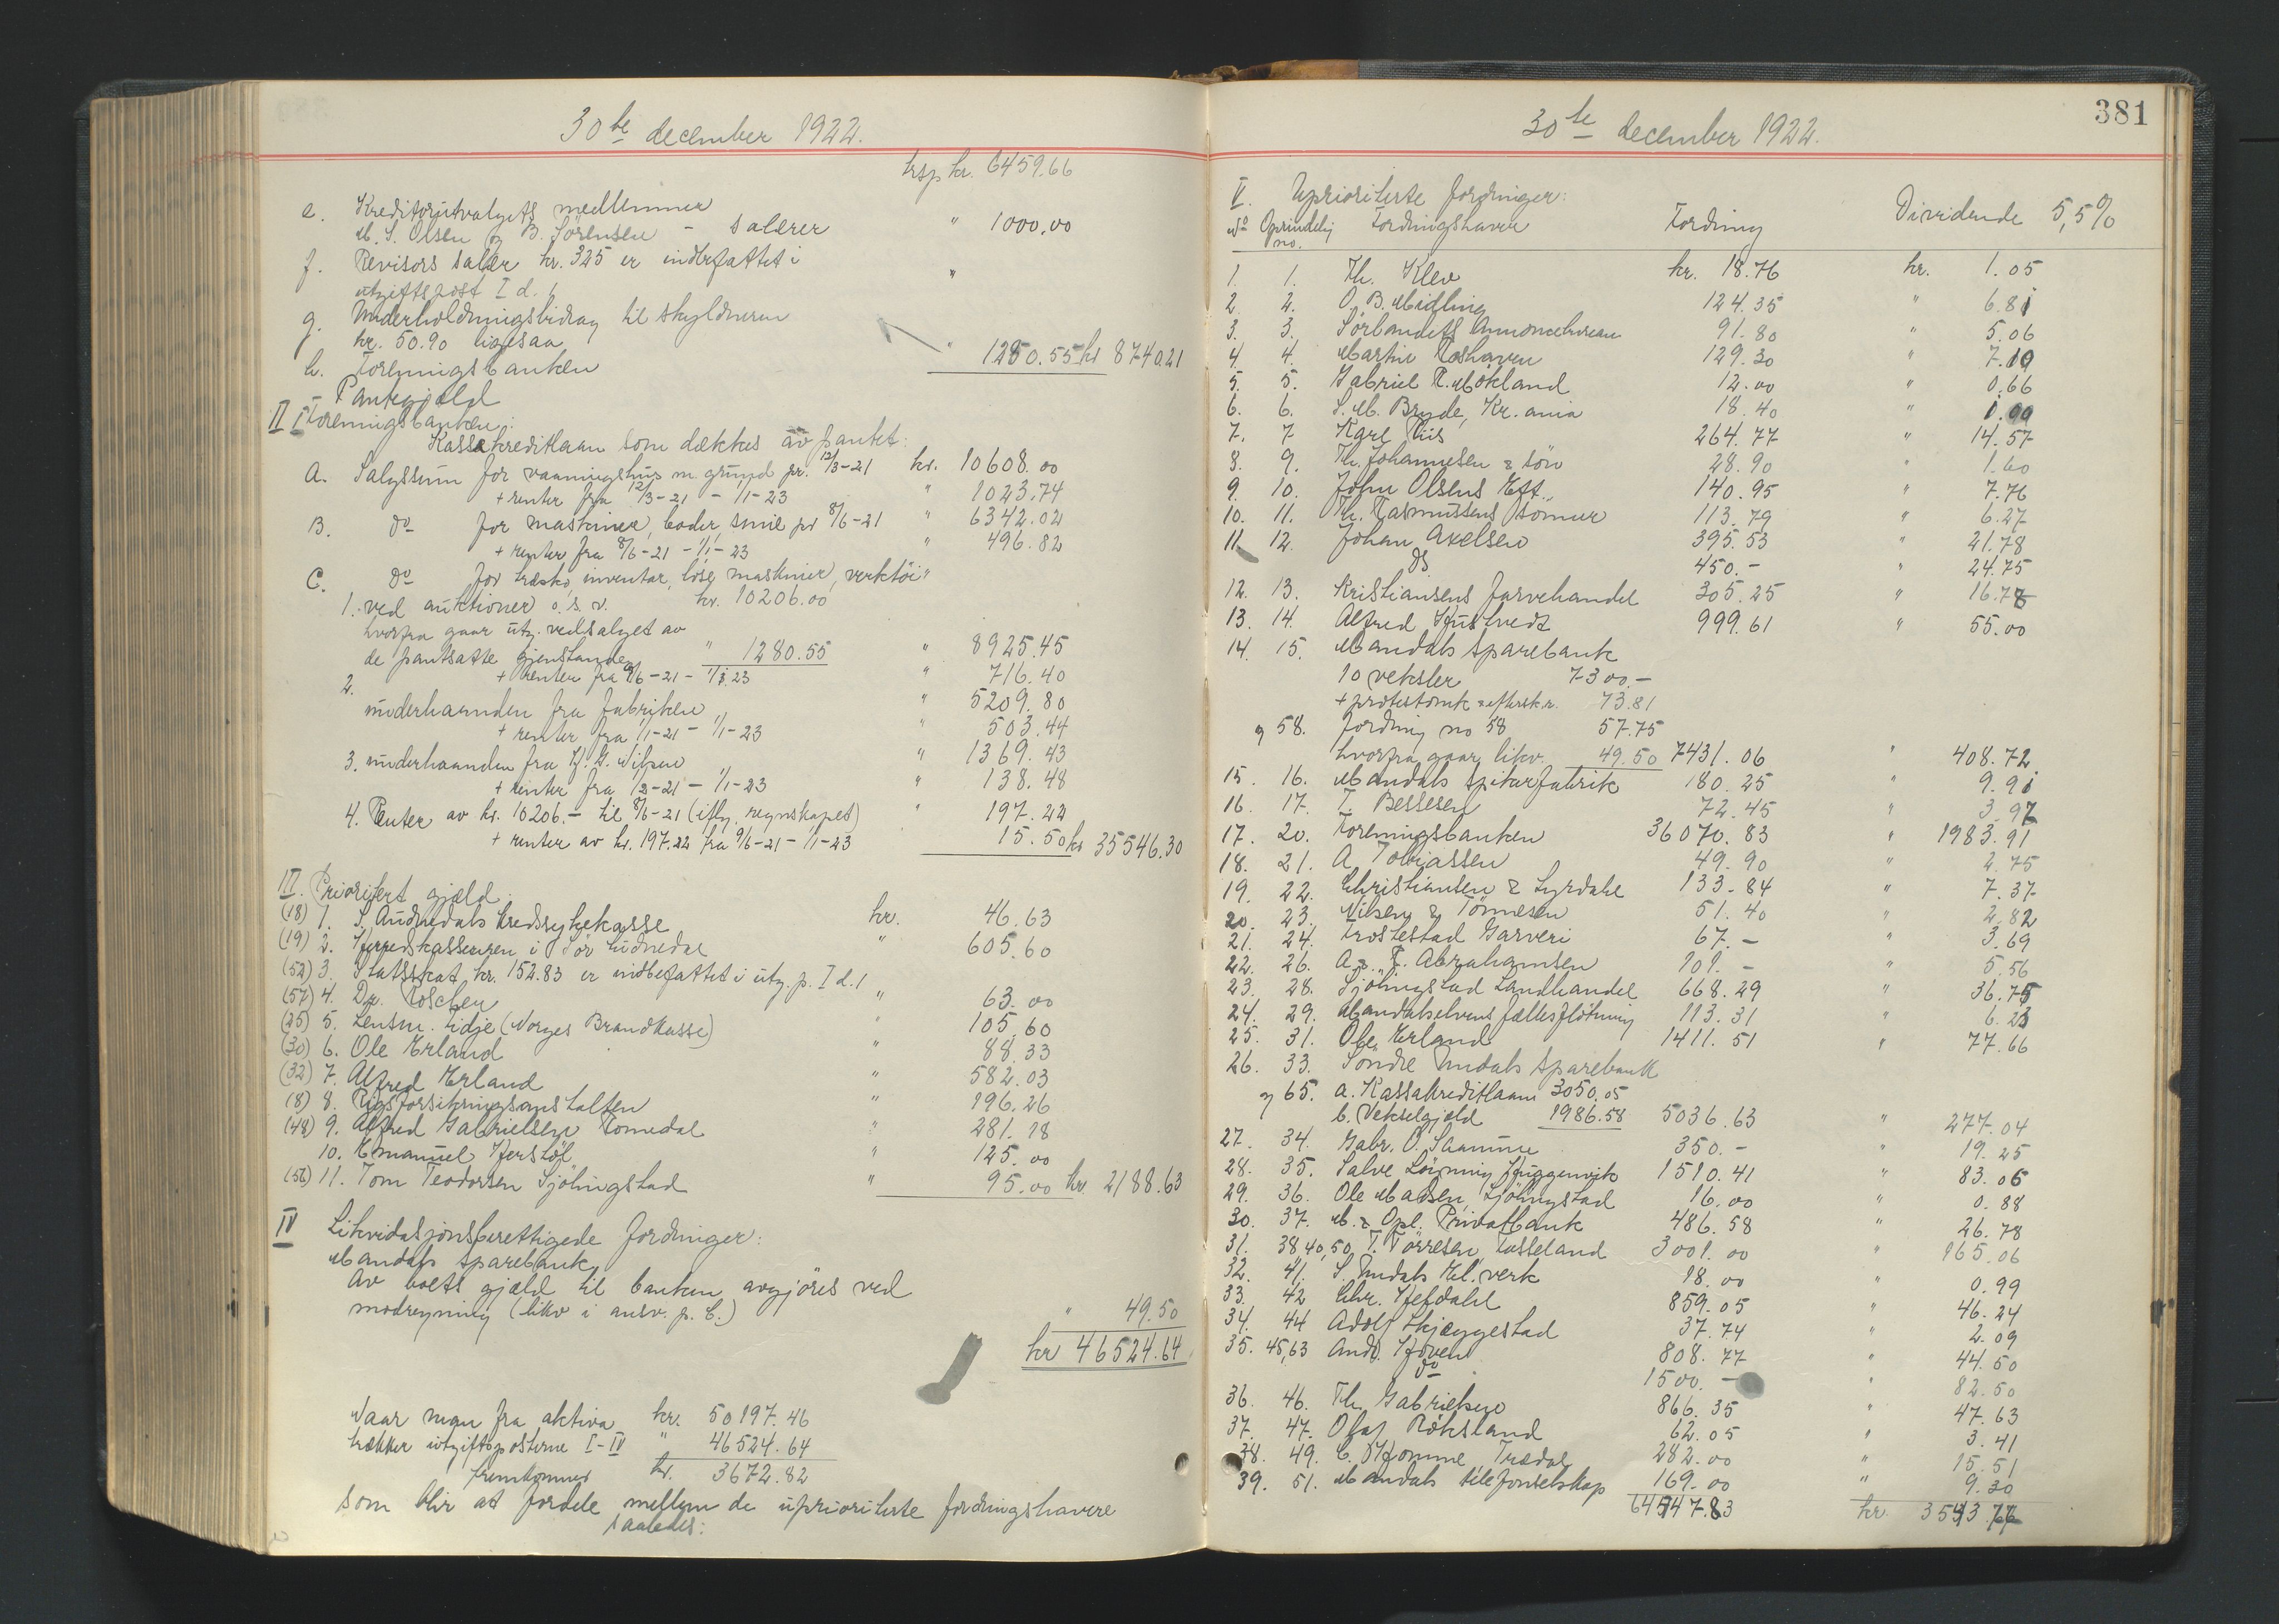 30te december 1922.
trsp kr. 6459.66
e. Kreditorutvalgets medlemmer
M. S. Olsen og B. Sörensen - salærer " 1000.00
f. Revisors salær kr. 325 er indbefattet i
utgiftspost I d. "
g. Underholdningsbidrag til skyldneren
kr. 50.90 ligesaa
h. Foreningsbanken " 1280.55 kr 8740.21
Pantegjæld
II I Foreningsbanken:
Kassakreditlaan som dækkes av pantet:
A. Salgssum for vaaningshus m. grund pr. 12/3-21 kr. 10608.00
+ renter fra 12/3-21 - 1/1-23 " 1023.74
B. do for maskiner, boder, smie pr 8/6-21 " 6342.02
+ renter fra 8/6-21 - 1/1-23 " 496.82
C. do for træsko, inventar, löse maskiner, verktöi "
1. ved auktioner o.s.v. kr. 10206.00
hvorfra gaar utg. ved salget av
de pantsatte gjenstande " 1280.55 " 8925.45
+ renter fra 8/6-21 - 1/1-23 " 716.40
2. underhaanden fra fabriken " 5209.80
+ renter fra 1/1-21 - 1/1-23 " 503.44
3. underhaanden fra Nilsen " 1369.43
+ renter fra - 1/1-23 " 138.48
4. Renter av kr. 10206.- til 8/6-21 (iflg. regnskapet) " 197.22
+ renter av kr. 197.22 fra 9/6-21 - 1/1-23 15.50 kr 35546.30
III. Prioritert gjæld.
(18) 1. S. Audnedals kredssykekasse kr. 46.63
(19) 2. Herredskassereren i Sör Audnedal " 605.60
(52) 3. Statsskat kr. 152.83 er indbefattet i utg. p. I d. 1
(57) 4. Dr. Roscher " 63.00
(25) 5. Lensm. Eidje (Norges Brandkasse) " 105.60
(30) 6. Ole Erland " 88.33
(32) 7. Alfred Erland " 582.03
(8) 8. Rigsforsikringsanstalten " 196.26
(48) 9. Alfred Gabrielsen Tomedal " 281.18
10. Emanuel Herstöl " 125.00
(56) 11. Tom Teodorsen Sjölingstad " 95.00 kr. 2188.63
IV Likvidasjonsberettigede fordringer:
Mandals sparebank
Av boets gjæld til banken avgjöres ved
modregning (likv i ansv. p. C.) " 49.50
kr 46524.64
Naar man fra aktiva kr. 50197.46
trækker utgiftsposterne I-IV " 46524.64
fremkommer kr. 3672.82
som blir at fordele mellem de uprioriterte fordringshavere
saaledes:
381
30te december 1922.
V. Uprioriterte fordringer:
No Oprindelig no. Fordringshaver Fordring Dividende 5,5%
1. 1. Th. Klev kr. 18.76 kr. 1.05
2. 2. O. B. Midling 124.35 " 6.81
3. 3. Sörlandets Annoncebureau 91.80 " 5.06
4. 4. Martin Roshaven 129.30 " 7.10
5. 5. Gabriel R. Mökland 12.00 " 0.66
6. 6. S. M. Bryde, Kr.ania 18.40 " 1.00
7. 7 Karl Riis 264.77 " 14.57
8. 9. Th. Johannesen & Sön 28.90 " 1.60
9. 10. John Olsens Eft. 140.95 " 7.76
10. 11. Th. Rasmussens sönner 113.79 " 6.27
11. 12. Johan Axelsen 395.53 " 21.78
do 450.- " 24.75
12. 13. Kristiansens farvehandel 305.25 " 16.78
13. 14. Alfred Kjustvedt 999.61 " 55.00
14. 15. Mandals sparebank
10 veksler 7300.-
+ protestomk & eftersk.r. 73.81
og 58. fordring no 58 57.75
hvorfra gaar likv. 49.50 7431.06 " 408.72
15. 16. Mandals spikerfabrik 180.25 " 9.91
16. 17. T. Bessesen 72.45 " 3.97
17. 20. Foreningsbanken 36070.83 " 1983.91
18. 21. A Tobiassen 49.90 " 2.75
19. 22. Christiansen & Lyrdahl 133.84 " 7.37
20. 23. Nilsen & Tönnesen 51.40 " 2.82
21. 24. Frostestad Garveri 67.- " 3.69
22. 26. A. T. Abrahamsen 101.- " 5.56
23. 28. Sjölingstad Landhandel 668.29 " 36.75
24. 29. Mandalselvens fællesflötning 113.31 " 6.23
25. 31. Ole Erland 1411.51 " 77.66
26. 33. Söndre Undals sparebank
og 65. a. Kassakreditlaan 3050.05
b. Vekselgjeld 1986.58 5036.63 " 277.04
27. 34. Gabr. O. Saanum 350.- " 19.25
28. 35. Salve Löining Skuggevik 1510.41 " 83.06
29. 36. Ole Madsen, Sjölingstad 16.00 " 0.88
30. 37. M. & Opl. Privatbank 486.58 " 26.78
31. 38 40, 50 T. Törresen, Tusseland 3001.00 " 165.06
32. 41. S. Undals El. verk 18.00 " 0.99
33. 42 Chr. Hesdahl 859.05 " 46.24
34. 44 Adolf Skjæggestad 37.74 " 2.09
35. 45,63 Andr. Skoven 808.77 " 44.50
do 1500.- " 82.50
36. 46. Th. Gabrielsen 866.35 " 47.63
37. 47. Olaf Röksland 62.05 " 3.41
38. 49. C. Homme, Trædal 282.00 " 15.51
39. 51. Mandals telefonselskap 169.00 " 9.30
64447.83 kr. 3543.77